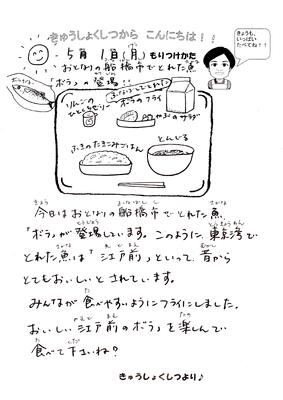 きゅうしょくしつから こんにちは！！
5月 1日(月) もりつけかた
きょうも、
いっぱい
たべてね！！
おとなりの船橋市でとれた魚
「ボラ」の登場！！
ふなばしでとれた
ボラのフライ
りんごの
ひとくちゼリー
やさいのサラダ
ふきのたきこみごはん
とんじる
今日はおとなりの船橋市でとれた魚
「ボラ」が登場しています。このように東京湾で
とれた魚は「江戸前」といって、昔から
とてもおいしいとされています。
みんなが食べやすいようにフライにしました。
おいしい江戸前のボラを楽しんで
食べて下さいね？
きゅうしょくしつより♪